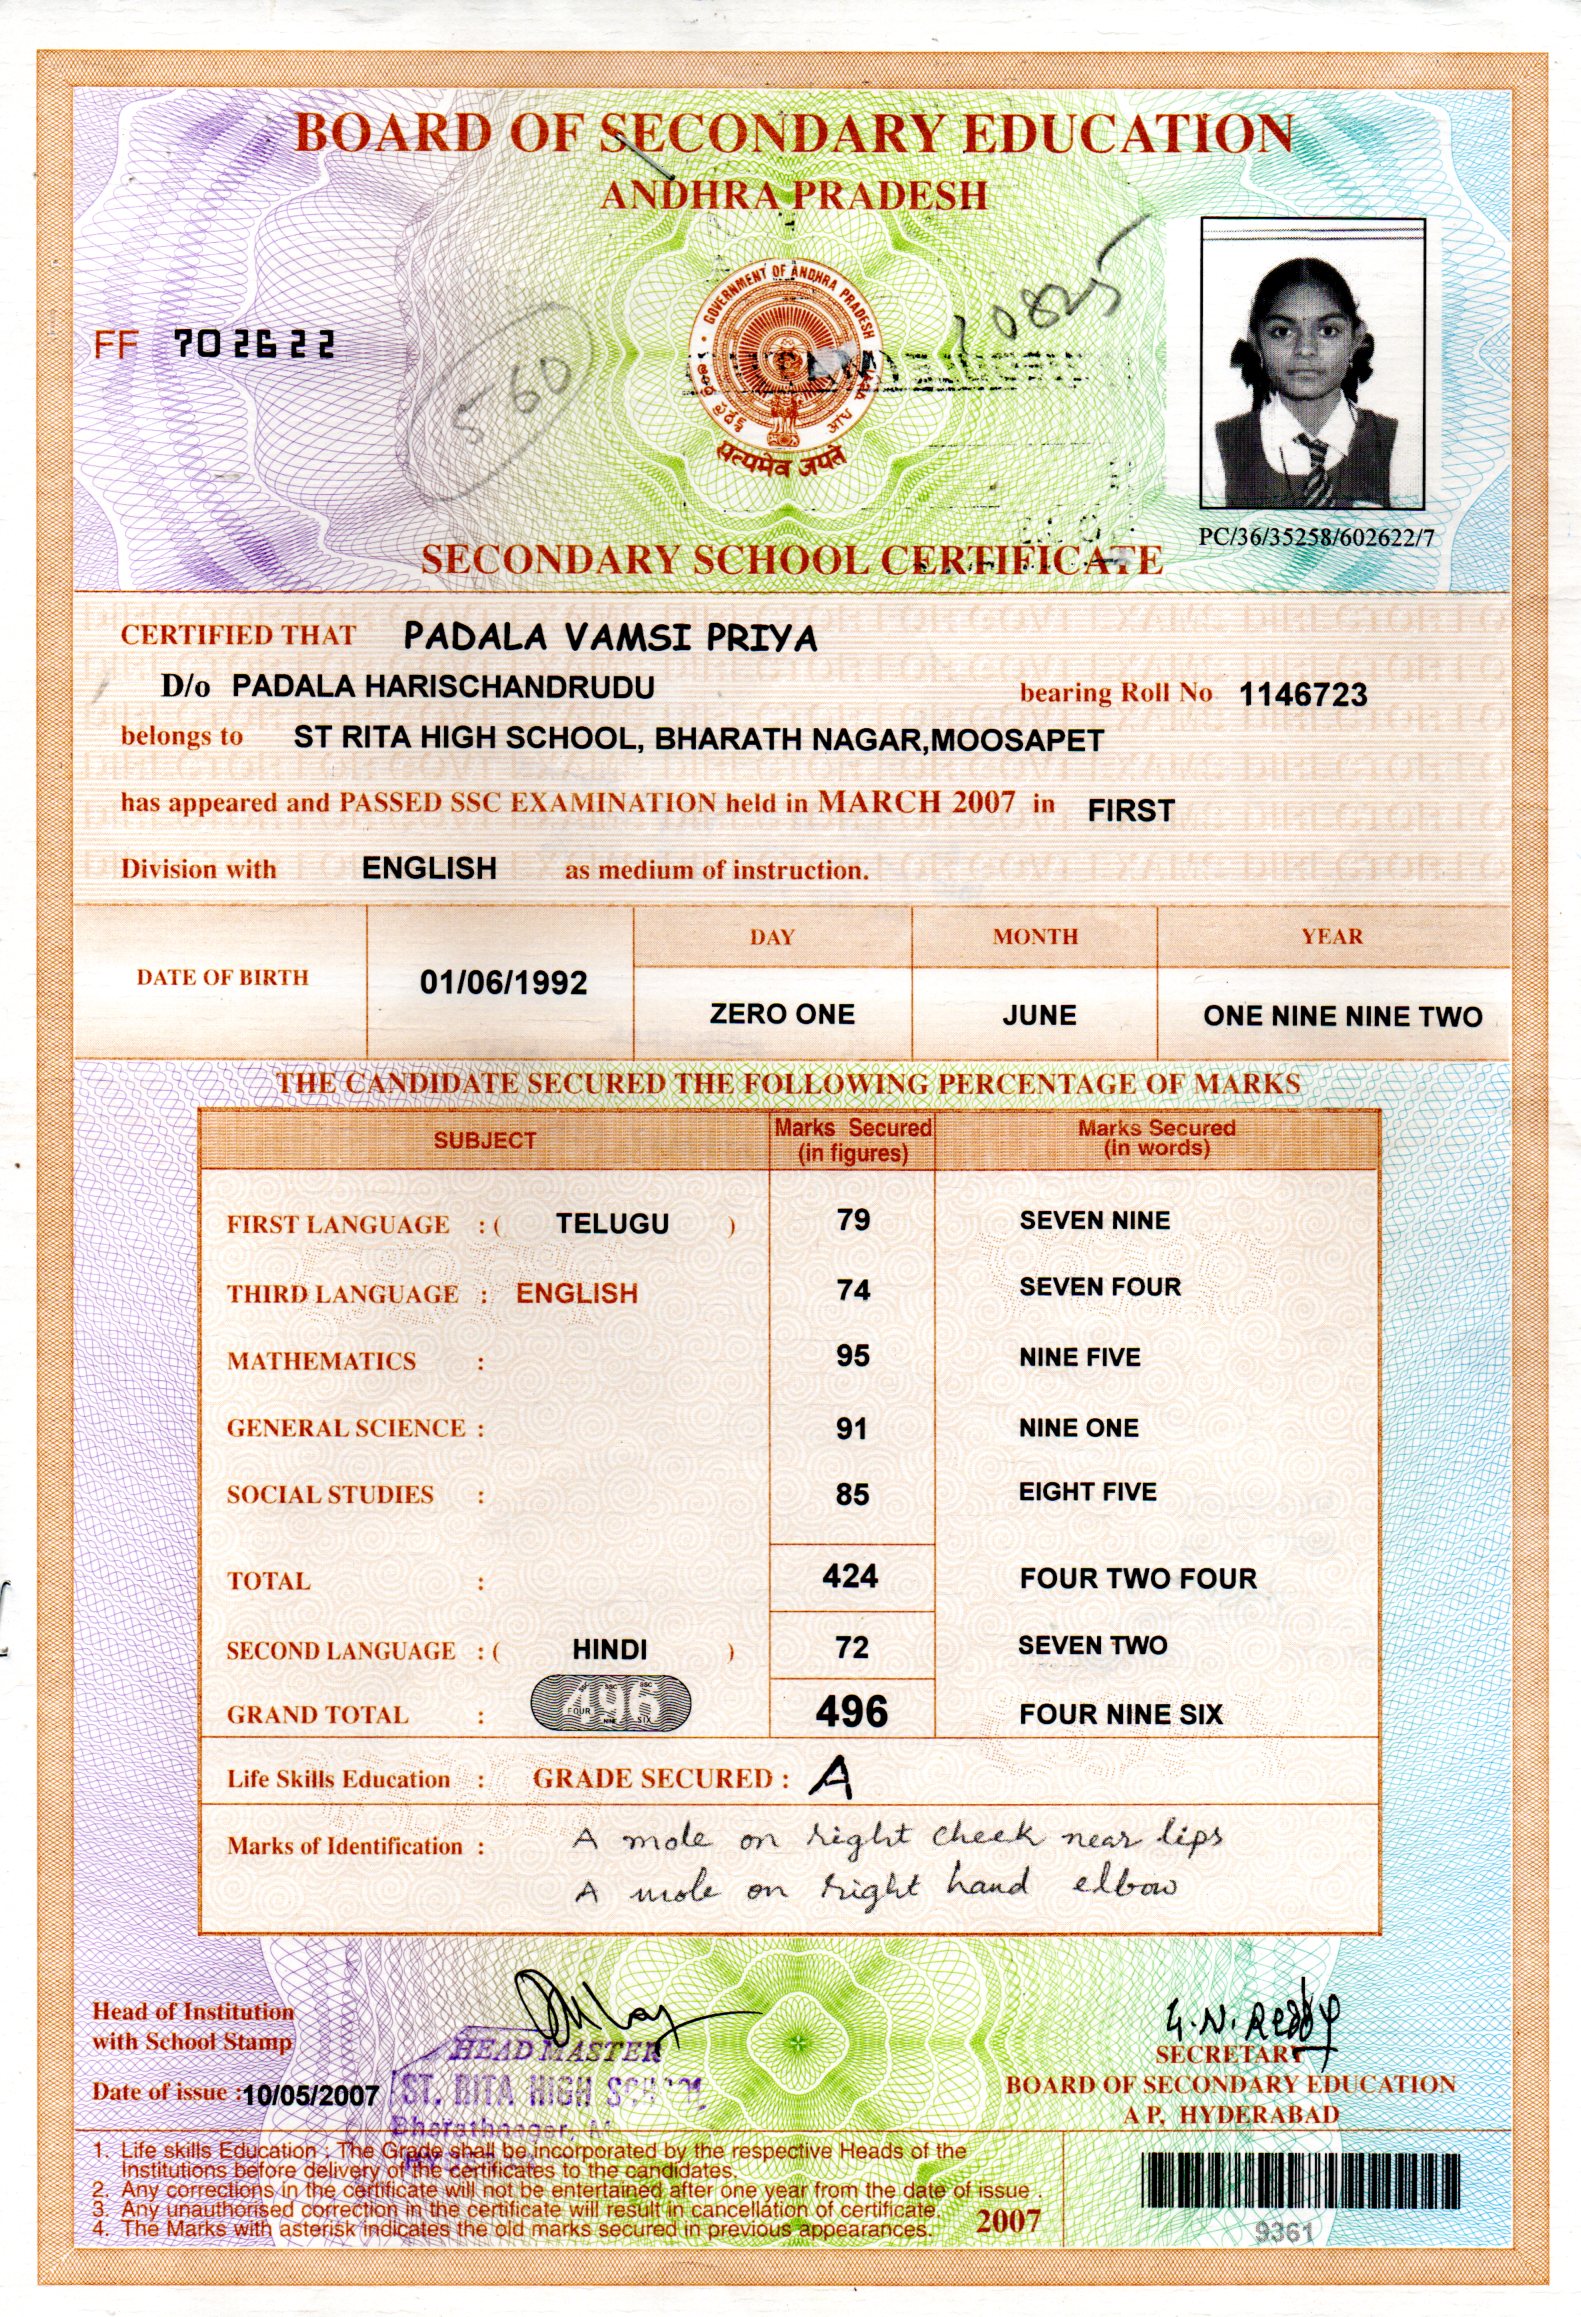 BOARD OF SECONDARY EDUCATION
ANDHRA PRADESH
10825
FF 702622
560
GOVERNMENT OF ANDHRA PRADESH
सत्यमेव जयते
PC/36/35258/602622/7
SECONDARY SCHOOL CERTIFICATE
CERTIFIED THAT PADALA VAMSI PRIYA
D/o PADALA HARISCHANDRUDU bearing Roll No 1146723
belongs to ST RITA HIGH SCHOOL, BHARATH NAGAR,MOOSAPET
has appeared and PASSED SSC EXAMINATION held in MARCH 2007 in FIRST
Division with ENGLISH as medium of instruction.
DAY MONTH YEAR
DATE OF BIRTH 01/06/1992
ZERO ONE JUNE ONE NINE NINE TWO
THE CANDIDATE SECURED THE FOLLOWING PERCENTAGE OF MARKS
SUBJECT Marks Secured (in figures) Marks Secured (in words)
FIRST LANGUAGE : ( TELUGU ) 79 SEVEN NINE
THIRD LANGUAGE : ENGLISH 74 SEVEN FOUR
MATHEMATICS : 95 NINE FIVE
GENERAL SCIENCE : 91 NINE ONE
SOCIAL STUDIES : 85 EIGHT FIVE
TOTAL : 424 FOUR TWO FOUR
SECOND LANGUAGE : ( HINDI ) 72 SEVEN TWO
GRAND TOTAL : 496 496 FOUR NINE SIX
Life Skills Education : GRADE SECURED : A
Marks of Identification : A mole on right cheek near lips
A mole on right hand elbow
Head of Institution
with School Stamp
HEAD MASTER
ST. RITA HIGH SCHOOL
Bharathnagar,
Date of issue :10/05/2007
G.N. Reddy
SECRETARY
BOARD OF SECONDARY EDUCATION
A P, HYDERABAD
1. Life skills Education : The Grade shall be incorporated by the respective Heads of the
Institutions before delivery of the certificates to the candidates.
2. Any corrections in the certificate will not be entertained after one year from the date of issue .
3. Any unauthorised correction in the certificate will result in cancellation of certificate.
4. The Marks with asterisk indicates the old marks secured in previous appearances.
2007
9361